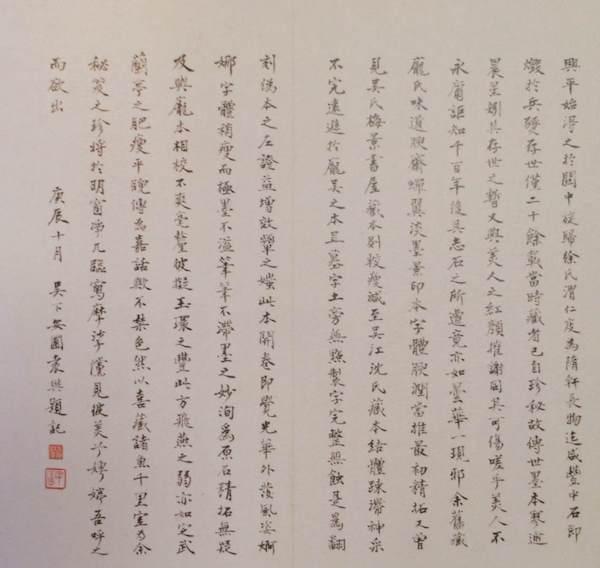 興平始得之於關中攜歸徐氏渭仁後為隋軒長物迨咸豐中石即
燬於兵燹存世僅二十餘載當時藏者已自珍秘故傳世墨本寥逾
晨星矧其存世之暫又與美人之紅顏摧謝同其可傷嗟乎美人不
永膚詎知千百年後其志石之所遭竟亦如曇華一現邪余舊藏
龐氏味道腴齋蟬翼淡墨景印本字體腴潤當推最初精拓又曾
見吳氏梅景書屋藏本則較瘦減至吳江沈氏藏本結體疎滯神采
不完遠遜於龐吳之本且墓字土旁無點製字完整無蝕是為翻
刻偽本之左證益增效顰之媸此本開卷即覺光華外發風姿婀
娜字體稍瘦而極墨不溢筆筆不滯墨之妙洵為原石隋拓無疑
及與龐本相校不爽毫釐彼擬玉環之豐此方飛燕之弱亦如定武
蘭亭之肥瘦平睨傳為嘉話歟不禁色然以喜藏諸魚千里室為余
秘笈之珍將於明窗淨几臨寫摩挲僅見彼美兮娉婷吾呼之
而欲出
庚辰十月 吳下安圃袁 題記